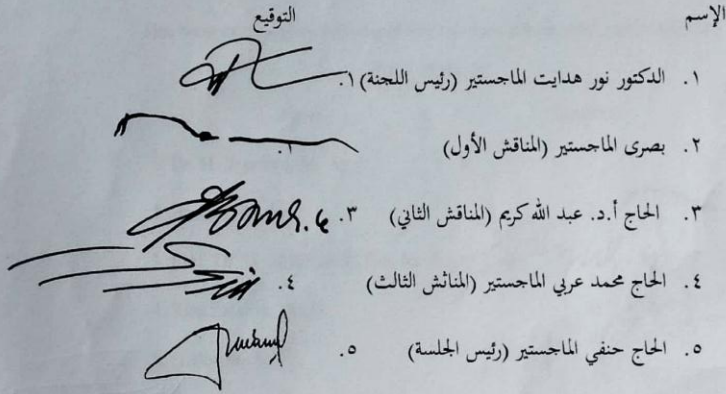 الإسم التوقيع
١. الدكتور نور هدايت الماجستير (رئيس اللجنة) ١.
٢. بصرى الماجستير (المناقش الأول)
٣. الحاج أ.د. عبد الله كريم (المناقش الثاني) ٣.
٤. الحاج محمد عربي الماجستير (المناثش الثالث) ٤.
٥. الحاج حنفي الماجستير (رئيس الجلسة) ٥.